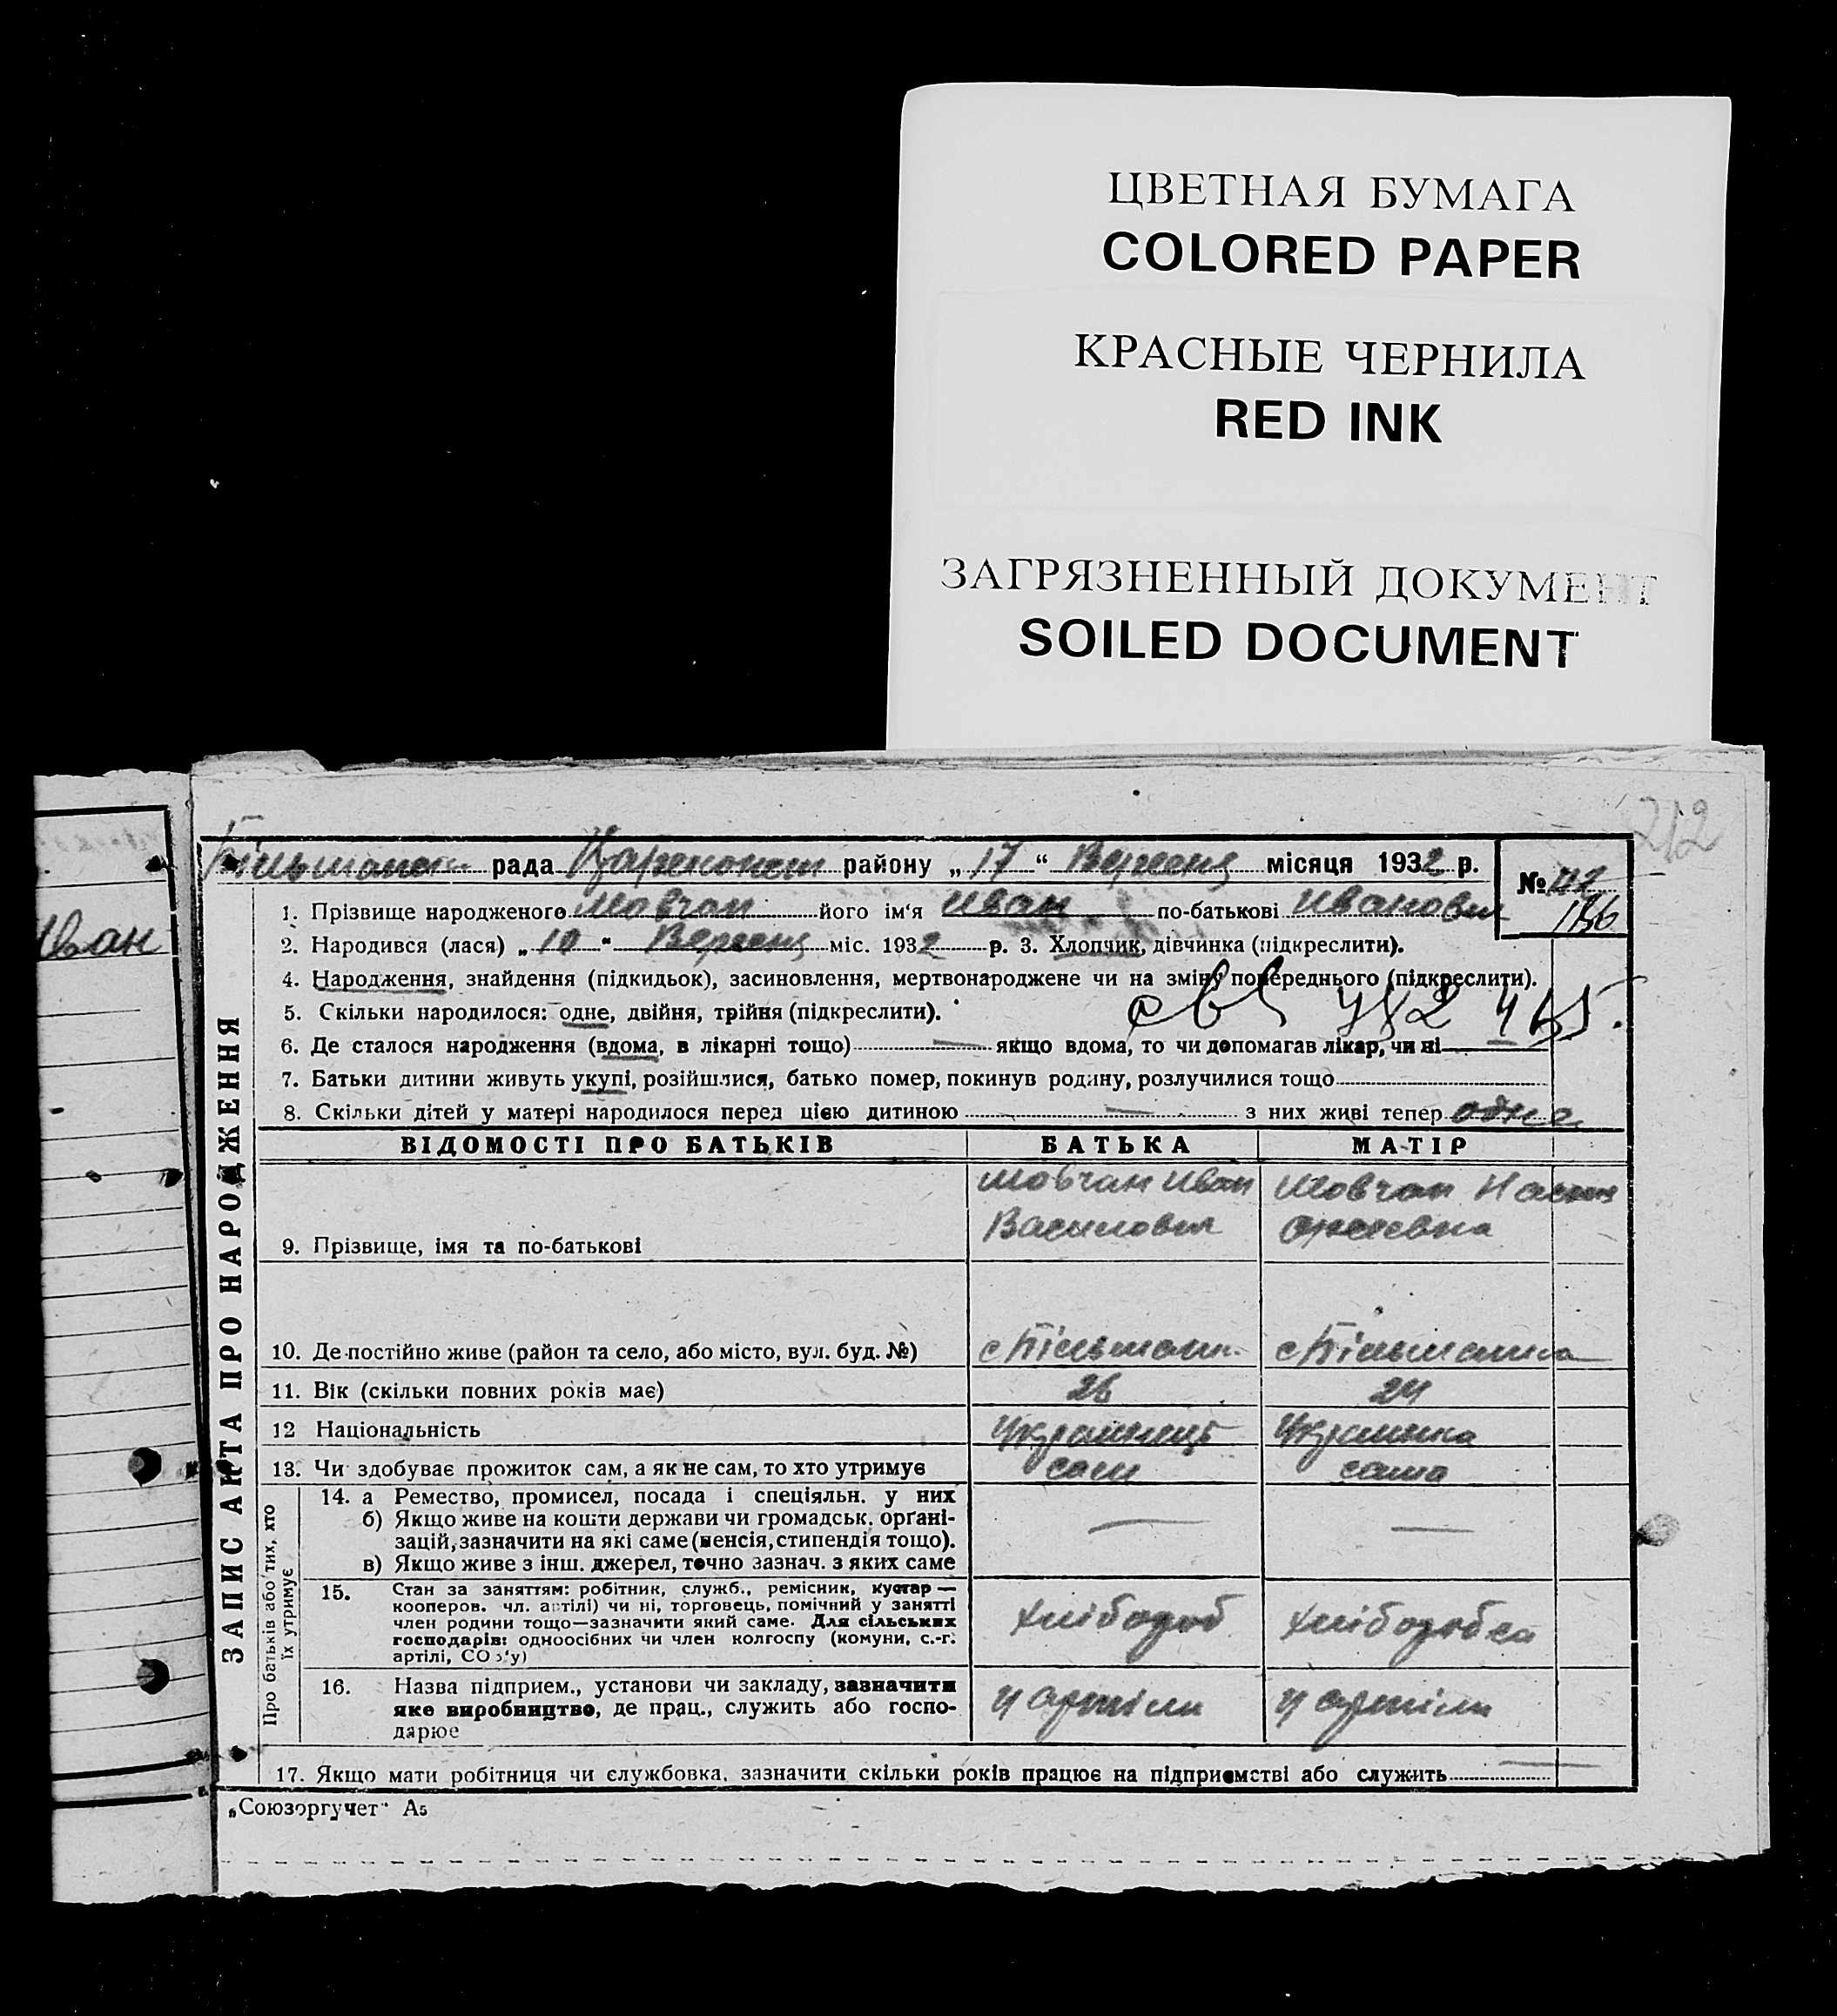 ЦВЕТНАЯ БУМАГА
COLORED PAPER
КРАСНЫЕ ЧЕРНИЛА
RED INK
ЗАГРЯЗНЕННЫЙ ДОКУМЕНТ
SOILED DOCUMENT
212
рада району „ 17 “ Вересня місяця 1932 р.
№ 112
186
Иван
1. Прізвище народженого Мовчан його ім‘я Иван по-батькові Иванович
2. Народився (лася) „ 10 “ Вересня міс. 1932 р. 3. Хлопчик, дівчинка (підкреслити).
4. Народження, знайдення (підкидьок), засиновлення, мертвонароджене чи на зміну попереднього (підкреслити).
5. Скільки народилося: одне, двійня, трійня (підкреслити).
6. Де сталося народження (вдома, в лікарні тощо) — якщо вдома, то чи допомагав лікар, чи ні —
7. Батьки дитини живуть укупі, розійшлися, батько помер, покинув родину, розлучилися тощо
8. Скільки дітей у матері народилося перед цією дитиною — з них живі тепер одна
ЗАПИС АКТА ПРО НАРОДЖЕННЯ
ВІДОМОСТІ ПРО БАТЬКІВ БАТЬКА МАТІР
Мовчан Иван Мовчан
Василович
9. Прізвище, імя та по-батькові
10. Де постійно живе (район та село, або місто, вул. буд. №) с Більман. с Більманка
11. Вік (скільки повних років має) 26 24
12 Національність Українець Українка
13. Чи здобуває прожиток сам, а як не сам, то хто утримує сам сама
Про батьків або тих, хто
їх утримує
14. а Ремество, промисел, посада і спеціяльн. у них
б) Якщо живе на кошти держави чи громадськ. орґані-
зацій, зазначити на які саме (пенсія, стипендія тощо). — —
в) Якщо живе з інш. джерел, точно зазнач. з яких саме
15. Стан за заняттям: робітник, служб., ремісник, кустар —
кооперов. чл. артілі) чи ні, торговець, помічний у занятті
член родини тощо—зазначити який саме. Для сільських
господарів: одноосібних чи член колгоспу (комуни, с.-г.
артілі, СОЗ‘у)
Хлібороб Хліборобка
16. Назва підприєм., установи чи закладу, зазначити
яке виробництво, де прац., служить або госпо-
дарює
у артіли у артіли
17. Якщо мати робітниця чи службовка, зазначити скільки років працює на підприємстві або служить —
„Союзоргучет“ А5